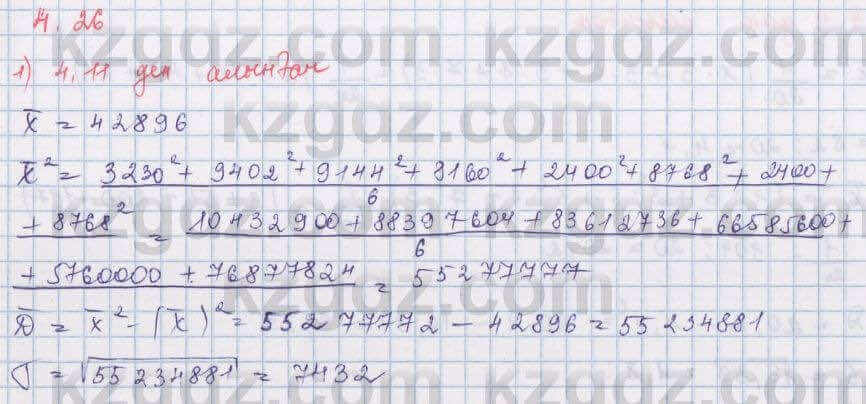 4.26
1) 4.11 ден алынған
x̅ = 42896
x̅² = 3230² + 9402² + 9144² + 8160² + 2400² + 8768² + 2400 +
6
+ 8768² = 10432900 + 88397604 + 83612736 + 66585600 +
6
+ 5760000 + 76877824 = 55277777
D̅ = x̅² - (x̅)² = 55277772 - 42896 = 55234881
σ = √55234881 = 7432
kzgdz.com